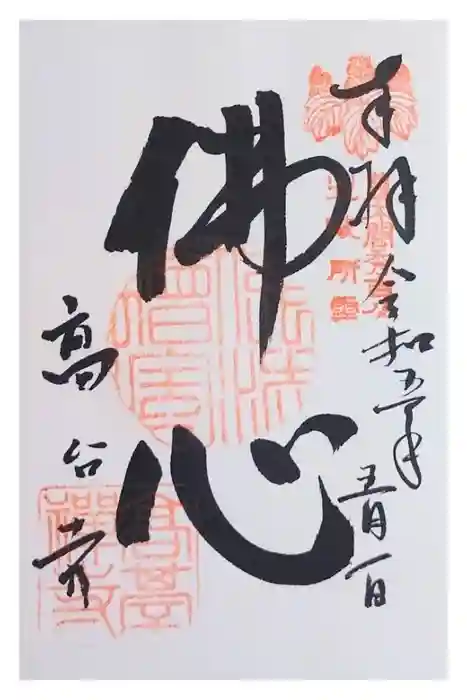 奉拝
令和五年
五月一日
佛心
高台寺